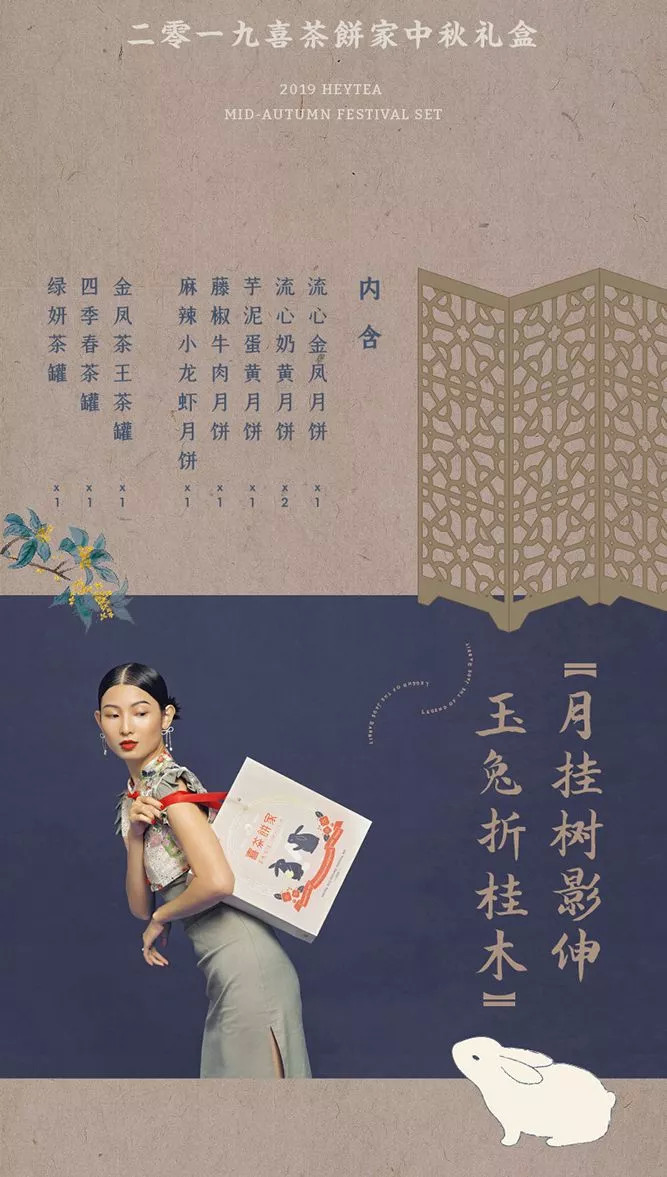 二零一九喜茶餅家中秋礼盒
2019 HEYTEA
MID-AUTUMN FESTIVAL SET
内含
流心金凤月饼 x1
流心奶黄月饼 x2
芋泥蛋黄月饼 x1
藤椒牛肉月饼 x1
麻辣小龙虾月饼 x1
金凤茶王茶罐 x1
四季春茶罐 x1
绿妍茶罐 x1
LEGEND OF THE JADE RABBIT
LEGEND OF THE JADE RABBIT
【月挂树影伸
玉兔折桂木】
喜茶餅家